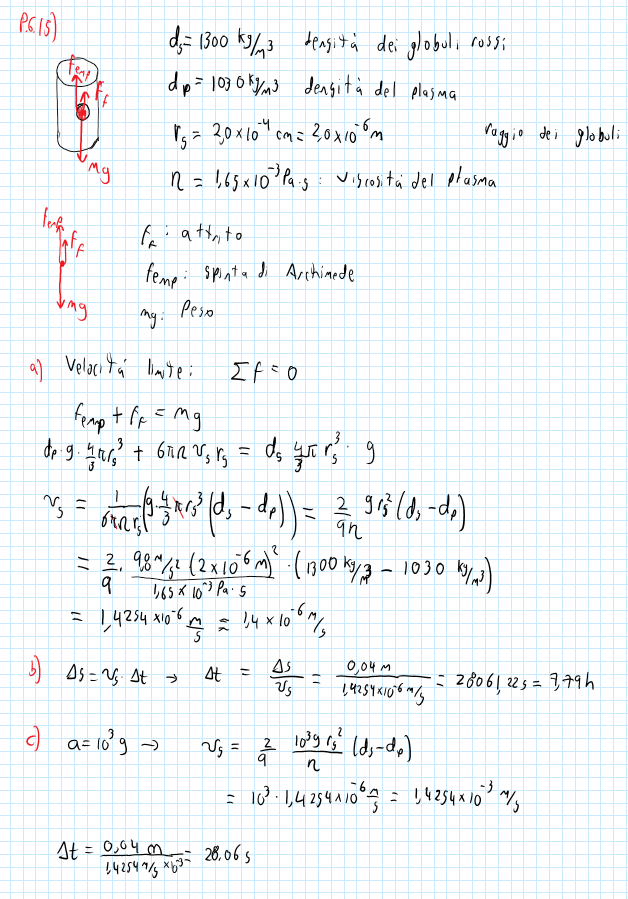 P.6.15)
d_s = 1300 kg/m³ densità dei globuli rossi
d_p = 1030 kg/m³ densità del plasma
r_s = 2,0 x 10⁻⁴ cm = 2,0 x 10⁻⁶ m raggio dei globuli
η = 1,65 x 10⁻³ Pa·s : viscosità del plasma
F_emp
F_f
mg
F_emp
F_f
mg
f_f : attrito
f_emp : spinta di Archimede
mg : Peso
a) Velocità limite: Σf = 0
f_emp + F_f = mg
d_p · g · 4/3 π r_s³ + 6πη v_s r_s = d_s 4/3 π r_s³ · g
v_s = 1/(6πη r_s) (g · 4/3 π r_s³ (d_s - d_p)) = 2/(9η) g r_s² (d_s - d_p)
= 2/9 · 9,8 m/s² (2 x 10⁻⁶ m)² / (1,65 x 10⁻³ Pa·s) · (1300 kg/m³ - 1030 kg/m³)
= 1,4254 x 10⁻⁶ m/s ≈ 1,4 x 10⁻⁶ m/s
b) Δs = v_s · Δt → Δt = Δs/v_s = 0,04 m / (1,4254 x 10⁻⁶ m/s) = 28061,22 s = 7,79 h
c) a = 10³ g → v_s = 2/9 10³ g r_s²/η (d_s - d_p)
= 10³ · 1,4254 x 10⁻⁶ m/s = 1,4254 x 10⁻³ m/s
Δt = 0,04 m / (1,4254 m/s x 10⁻³) = 28,06 s